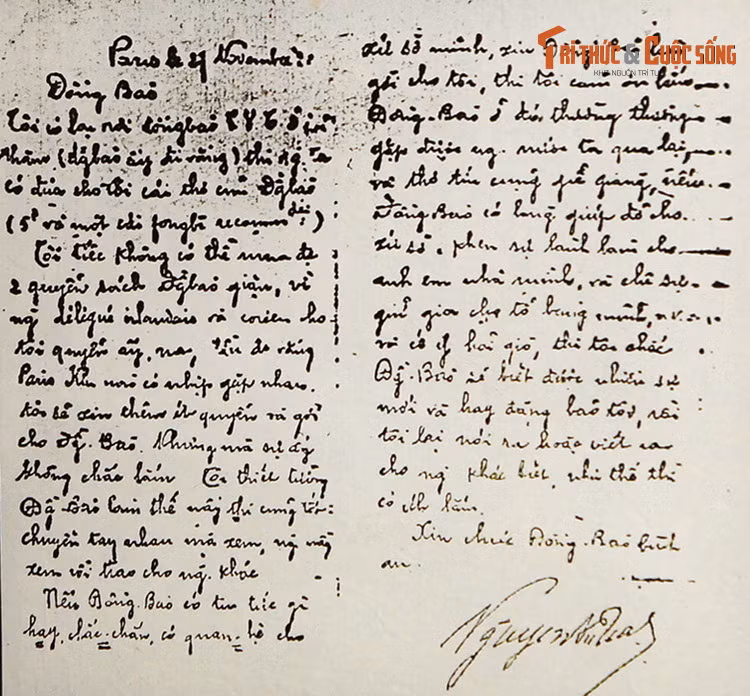 TRI THỨC & CUỘC SỐNG
Paris le 27 Novembre
Đồng Bào
Tôi có lại nơi đồngbào
thăm (đgbào ấy đi vắng) thì ng ta
có đưa cho tôi cái thơ của Đgbào
(5f và một cái fongbì recomm
Tôi tiếc không có thể mua đc
2 quyển sách Đgbào giặn, vì
ng délégué irlandais và coréen cho
tôi quyển ấy,
Paris khi nào có nhịp gặp nhau.
tôi sẽ xin thêm ít quyển và gởi
cho Đg. Bào. Nhưng mà sự ấy
không chắc lắm Tôi thiết tưởng
Đg-Bào làm thế này thì cũng tốt:
chuyền tay nhau mà xem, ng này
xem rồi trao cho ng. khác
Nếu Đồng-Bào có tin tức gì
hay, chắc-chắn, có quan-hệ cho
xứ sở mình, xin Đồng Bào
gởi cho tôi, thì tôi cám ơn lắm
Đồng-Bào ở đó thường thường
gặp được ng. mình ta qua lại,
và thơ tín cũng giễ giàng, nếu
Đồng-Bào có lòng giúp đỡ cho
xứ sở, khen sự lành làm cho
anh em nhà mình, và chê sự
giữ gìa
và có ý hỏi giò, thì tôi chắc
Đg-Bào sẽ biết được nhiều sự
mới và hay đặng bảo tôi, rồi
tôi lại nói ra hoặc viết ra
cho ng khác biết, như thế thì
có ích lắm.
Xin chúc Đồng-Bào bình
an.